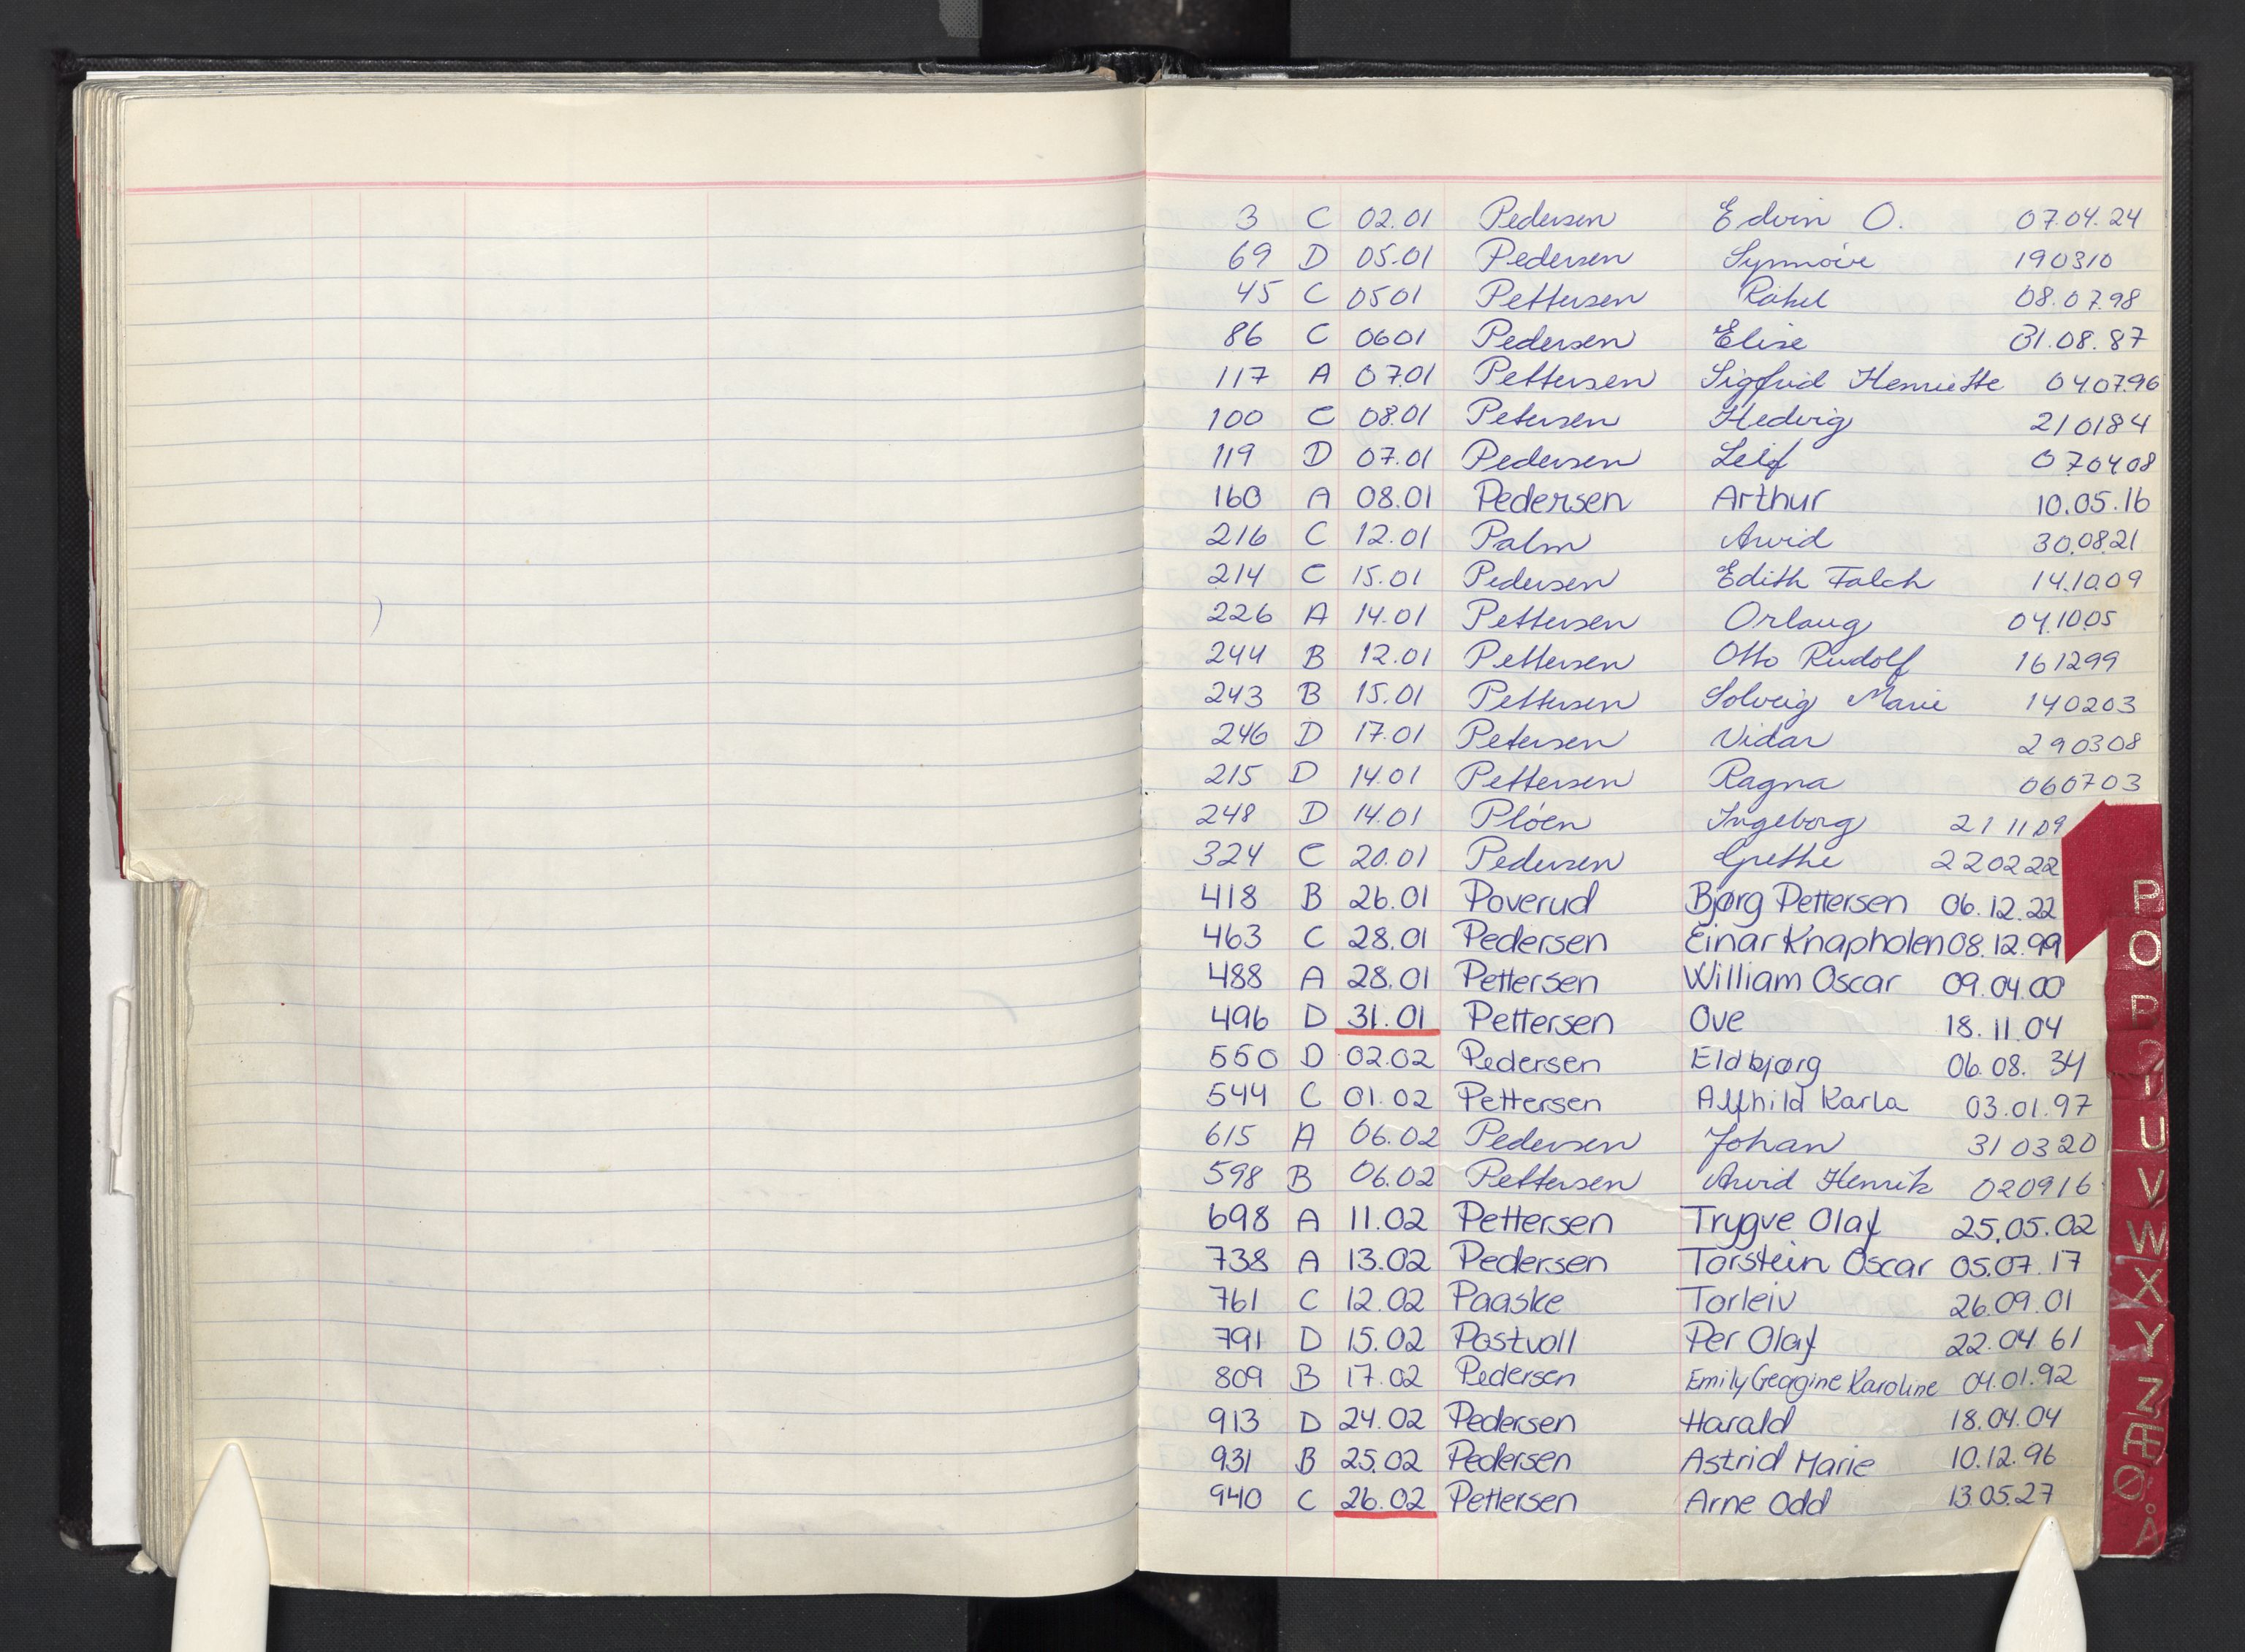 3 C 02.01 Pedersen Edvin O. 07.04.24
69 D 05.01 Pedersen Synnøve 190310
45 C 0501 Pettersen Rakel 08.07.98
86 C 0601 Pedersen Elise 31.08.87
117 A 07.01 Pettersen Sigfrid Henriette 040796
100 C 08.01 Petersen Hedvig 210184
119 D 07.01 Pedersen Leif 070408
160 A 08.01 Pedersen Arthur 10.05.16
216 C 12.01 Palm Arvid 30.08.21
214 C 15.01 Pedersen Edith Falch 14.10.09
226 A 14.01 Pettersen Orlaug 04.10.05
244 B 12.01 Pettersen Otto Rudolf 161299
243 B 15.01 Pettersen Solveig Marie 140203
246 D 17.01 Petersen Vidar 290308
215 D 14.01 Pettersen Ragna 060703
248 D 14.01 Pløen Ingeborg 211109
324 C 20.01 Pedersen Grethe 220222
418 B 26.01 Poverud Bjørg Pettersen 06.12.22
463 C 28.01 Pedersen Einar Knapholen 08.12.99
488 A 28.01 Pettersen William Oscar 09.04.00
496 D 31.01 Pettersen Ove 18.11.04
550 D 02.02 Pedersen Eldbjørg 06.08.34
544 C 01.02 Pettersen Alfhild Karla 03.01.97
615 A 06.02 Pedersen Johan 310320
598 B 06.02 Pettersen Arvid Henrik 020916
698 A 11.02 Pettersen Trygve Olaf 25.05.02
738 A 13.02 Pedersen Torstein Oscar 05.07.17
761 C 12.02 Paaske Torleiv 26.09.01
791 D 15.02 Postvoll Per Olaf 22.04.61
809 B 17.02 Pedersen Emily Georgine Karoline 04.01.92
913 D 24.02 Pedersen Harald 18.04.04
931 B 25.02 Pedersen Astrid Marie 10.12.96
940 C 26.02 Pettersen Arne Odd 13.05.27
P
O
U
V
W
X
Y
Z
Æ
Ø
Å